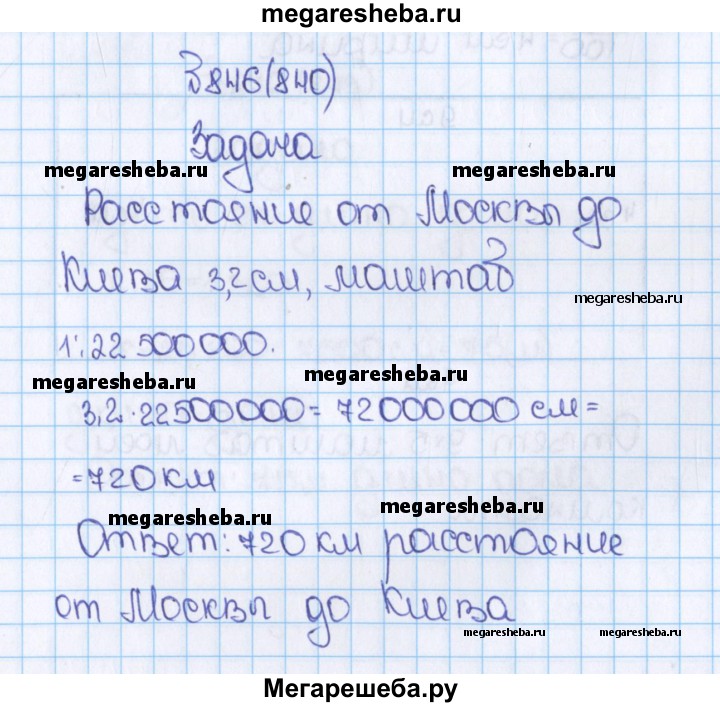 megaresheba.ru
В 846(840)
Задача
megaresheba.ru
megaresheba.ru
Расстояние от Москвы до
Киева 3,2 см, маштаб
megaresheba.ru
1:22 500000.
megaresheba.ru
megaresheba.ru
3,2·22500000= 72000000 см=
=720 км
megaresheba.ru
megaresheba.ru
Ответ: 720 км расстояние
от Москвы до Киева
megaresheba.ru
megaresheba.ru
Мегарешеба.ру